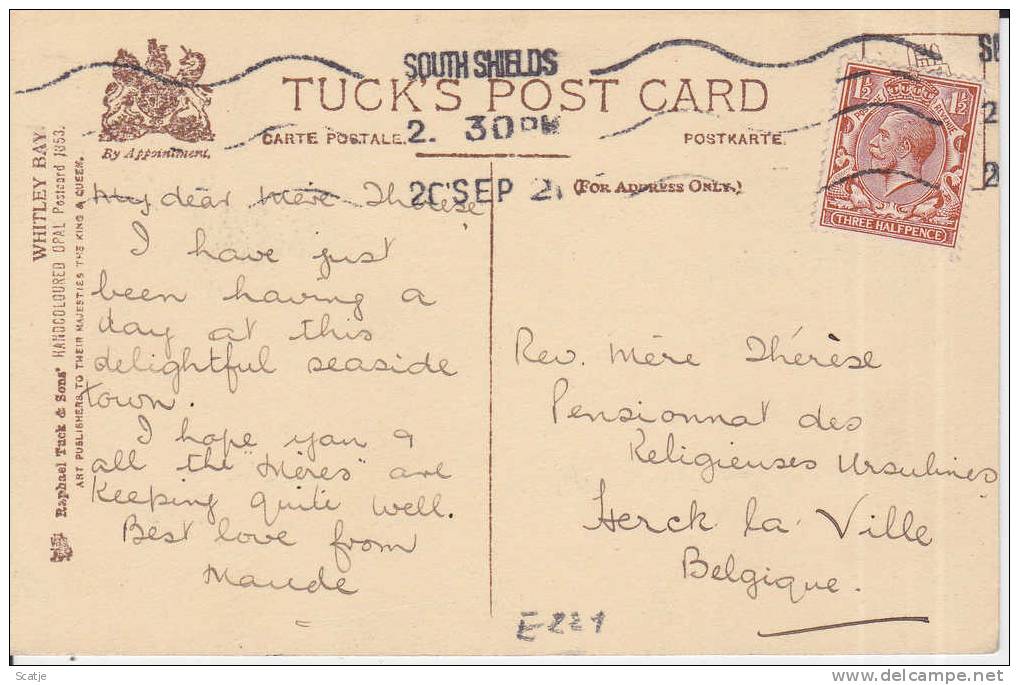 SOUTH SHIELDS
2. 30 PM
20 SEP 21
TUCK'S POST CARD
CARTE POSTALE.
POSTKARTE.
By Appointment.
(FOR ADDRESS ONLY.)
1½ 1½
POSTAGE REVENUE
THREE HALFPENCE
WHITLEY BAY.
Raphael Tuck & Sons' HANDCOLOURED OPAL Postcard 1853.
ART PUBLISHERS TO THEIR MAJESTIES THE KING & QUEEN.
My dear Mère Thérèse
I have just
been having a
day at this
delightful seaside
town.
I hope you &
all the "Mères" are
keeping quite well.
Best love from
Maude
Rev. Mère Thérèse
Pensionnat des
Religieuses Ursulines
Herck la Ville
Belgique.
E-221
Scatje
delcampe.net